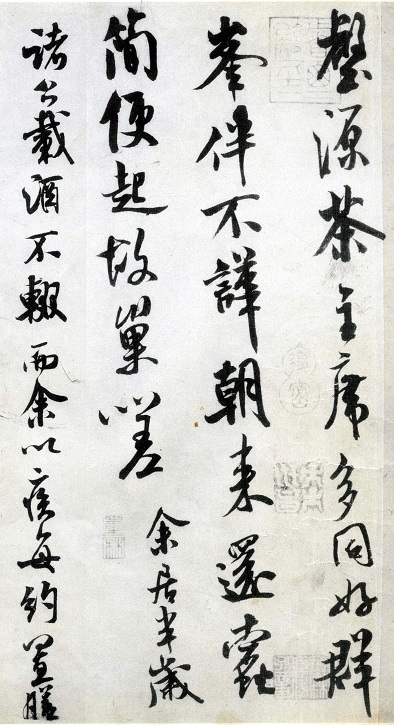 壑源茶主席多同好群
峯伴不譁朝来還蠹
簡便起故巢嗟 余居半歲
諸公載酒不輟而余以疾每約置膳